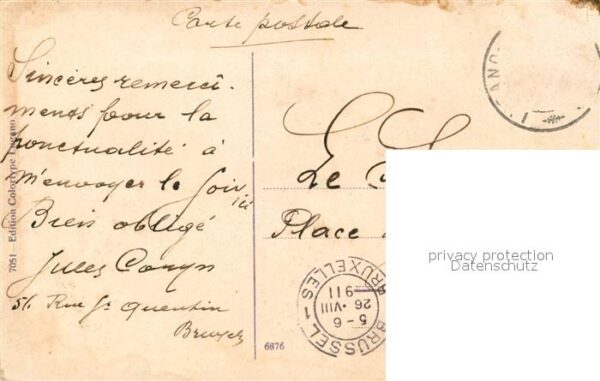 Carte postale
Sincères remercî-
ments pour la
ponctualité à
m'envoyer le Soir
ici
Bien obligé
Jules
51. Rue St Quentin
7051 Edition Colortype Lugano
Le
Place
privacy protection
Datenschutz
BRUSSEL 1
BRUXELLES 1
5-6
26·VIII
911
6876